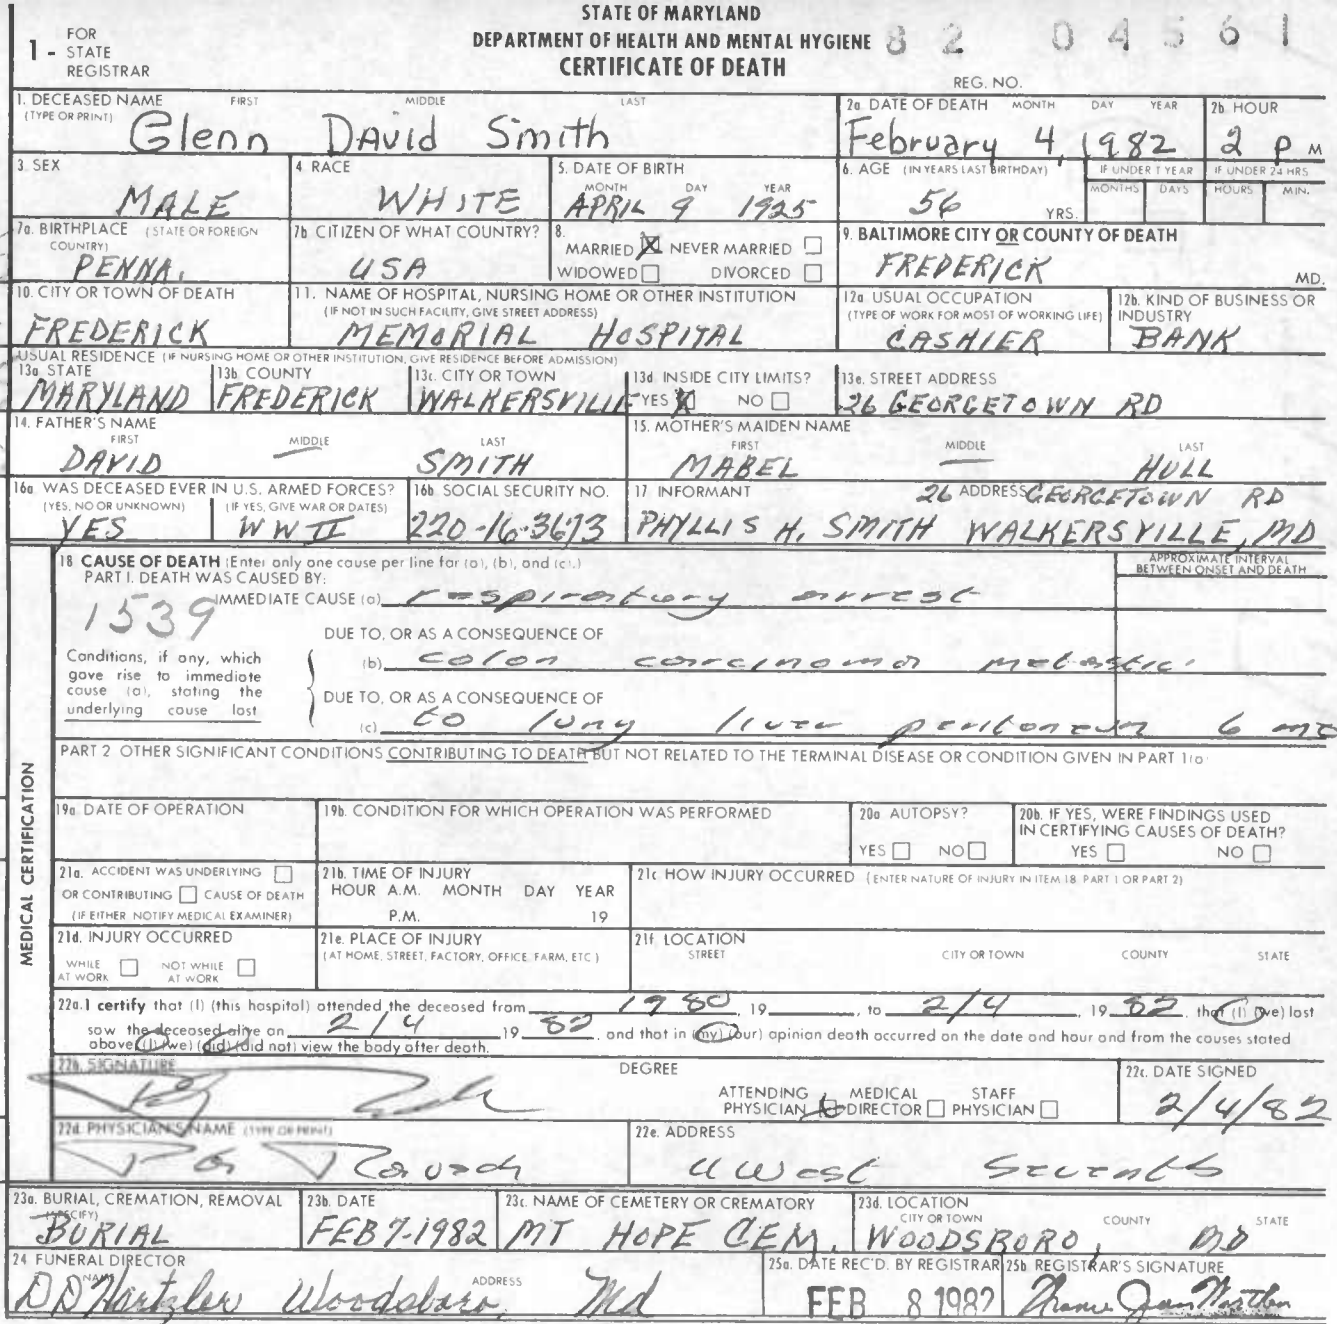 STATE OF MARYLAND
DEPARTMENT OF HEALTH AND MENTAL HYGIENE
CERTIFICATE OF DEATH
82 04561
REG. NO.
1 - FOR STATE REGISTRAR
1. DECEASED NAME (TYPE OR PRINT) FIRST MIDDLE LAST
Glenn David Smith
2a. DATE OF DEATH MONTH DAY YEAR
February 4, 1982
2b. HOUR
2 P M
3. SEX
MALE
4. RACE
WHITE
5. DATE OF BIRTH MONTH DAY YEAR
APRIL 9 1925
6. AGE (IN YEARS LAST BIRTHDAY)
56 YRS.
IF UNDER 1 YEAR MONTHS DAYS
IF UNDER 24 HRS HOURS MIN.
7a. BIRTHPLACE (STATE OR FOREIGN COUNTRY)
PENNA.
7b. CITIZEN OF WHAT COUNTRY?
USA
8. MARRIED X NEVER MARRIED
WIDOWED DIVORCED
9. BALTIMORE CITY OR COUNTY OF DEATH
FREDERICK MD.
10. CITY OR TOWN OF DEATH
FREDERICK
11. NAME OF HOSPITAL, NURSING HOME OR OTHER INSTITUTION
(IF NOT IN SUCH FACILITY, GIVE STREET ADDRESS)
MEMORIAL HOSPITAL
12a. USUAL OCCUPATION
(TYPE OF WORK FOR MOST OF WORKING LIFE)
CASHIER
12b. KIND OF BUSINESS OR INDUSTRY
BANK
USUAL RESIDENCE (IF NURSING HOME OR OTHER INSTITUTION, GIVE RESIDENCE BEFORE ADMISSION)
13a. STATE
MARYLAND
13b. COUNTY
FREDERICK
13c. CITY OR TOWN
WALKERSVILLE
13d. INSIDE CITY LIMITS?
YES X NO
13e. STREET ADDRESS
26 GEORGETOWN RD
14. FATHER'S NAME FIRST MIDDLE LAST
DAVID — SMITH
15. MOTHER'S MAIDEN NAME FIRST MIDDLE LAST
MABEL — HULL
16a. WAS DECEASED EVER IN U.S. ARMED FORCES?
(YES, NO OR UNKNOWN) (IF YES, GIVE WAR OR DATES)
YES WW II
16b. SOCIAL SECURITY NO.
220-16-3673
17. INFORMANT ADDRESS
PHYLLIS H. SMITH 26 GEORGETOWN RD WALKERSVILLE, MD
18 CAUSE OF DEATH (Enter only one cause per line for (a), (b), and (c).)
APPROXIMATE INTERVAL BETWEEN ONSET AND DEATH
PART I. DEATH WAS CAUSED BY:
1539
IMMEDIATE CAUSE (a) respiratory arrest
DUE TO, OR AS A CONSEQUENCE OF
(b) colon carcinoma
DUE TO, OR AS A CONSEQUENCE OF
(c) to lung liver peritoneum 6
Conditions, if any, which gave rise to immediate cause (a), stating the underlying cause last
PART 2 OTHER SIGNIFICANT CONDITIONS CONTRIBUTING TO DEATH BUT NOT RELATED TO THE TERMINAL DISEASE OR CONDITION GIVEN IN PART 1(a)
MEDICAL CERTIFICATION
19a. DATE OF OPERATION
19b. CONDITION FOR WHICH OPERATION WAS PERFORMED
20a AUTOPSY?
YES NO
20b. IF YES, WERE FINDINGS USED IN CERTIFYING CAUSES OF DEATH?
YES NO
21a. ACCIDENT WAS UNDERLYING
OR CONTRIBUTING CAUSE OF DEATH
(IF EITHER NOTIFY MEDICAL EXAMINER)
21b. TIME OF INJURY
HOUR A.M. MONTH DAY YEAR
P.M. 19
21c HOW INJURY OCCURRED (ENTER NATURE OF INJURY IN ITEM 18 PART 1 OR PART 2)
21d. INJURY OCCURRED
WHILE AT WORK NOT WHILE AT WORK
21e. PLACE OF INJURY
(AT HOME, STREET, FACTORY, OFFICE, FARM, ETC.)
21f. LOCATION
STREET CITY OR TOWN COUNTY STATE
22a. I certify that (I) (this hospital) attended the deceased from 1980, 19, to 2/4, 19 82, that (I) (we) last
saw the deceased alive on 2/4 19 82, and that in (my) (our) opinion death occurred on the date and hour and from the causes stated
above (I) (we) (did) (did not) view the body after death.
22b. SIGNATURE
DEGREE
ATTENDING PHYSICIAN MEDICAL DIRECTOR STAFF PHYSICIAN
22c. DATE SIGNED
2/4/82
22d. PHYSICIAN'S NAME (TYPE OR PRINT)
22e. ADDRESS
West
23a. BURIAL, CREMATION, REMOVAL (SPECIFY)
BURIAL
23b. DATE
FEB 7-1982
23c. NAME OF CEMETERY OR CREMATORY
MT HOPE CEM.
23d. LOCATION CITY OR TOWN COUNTY STATE
WOODSBORO, MD
24 FUNERAL DIRECTOR
NAME ADDRESS
DD Hartzler Woodsboro, Md
25a. DATE REC'D. BY REGISTRAR
FEB 8 1982
25b. REGISTRAR'S SIGNATURE